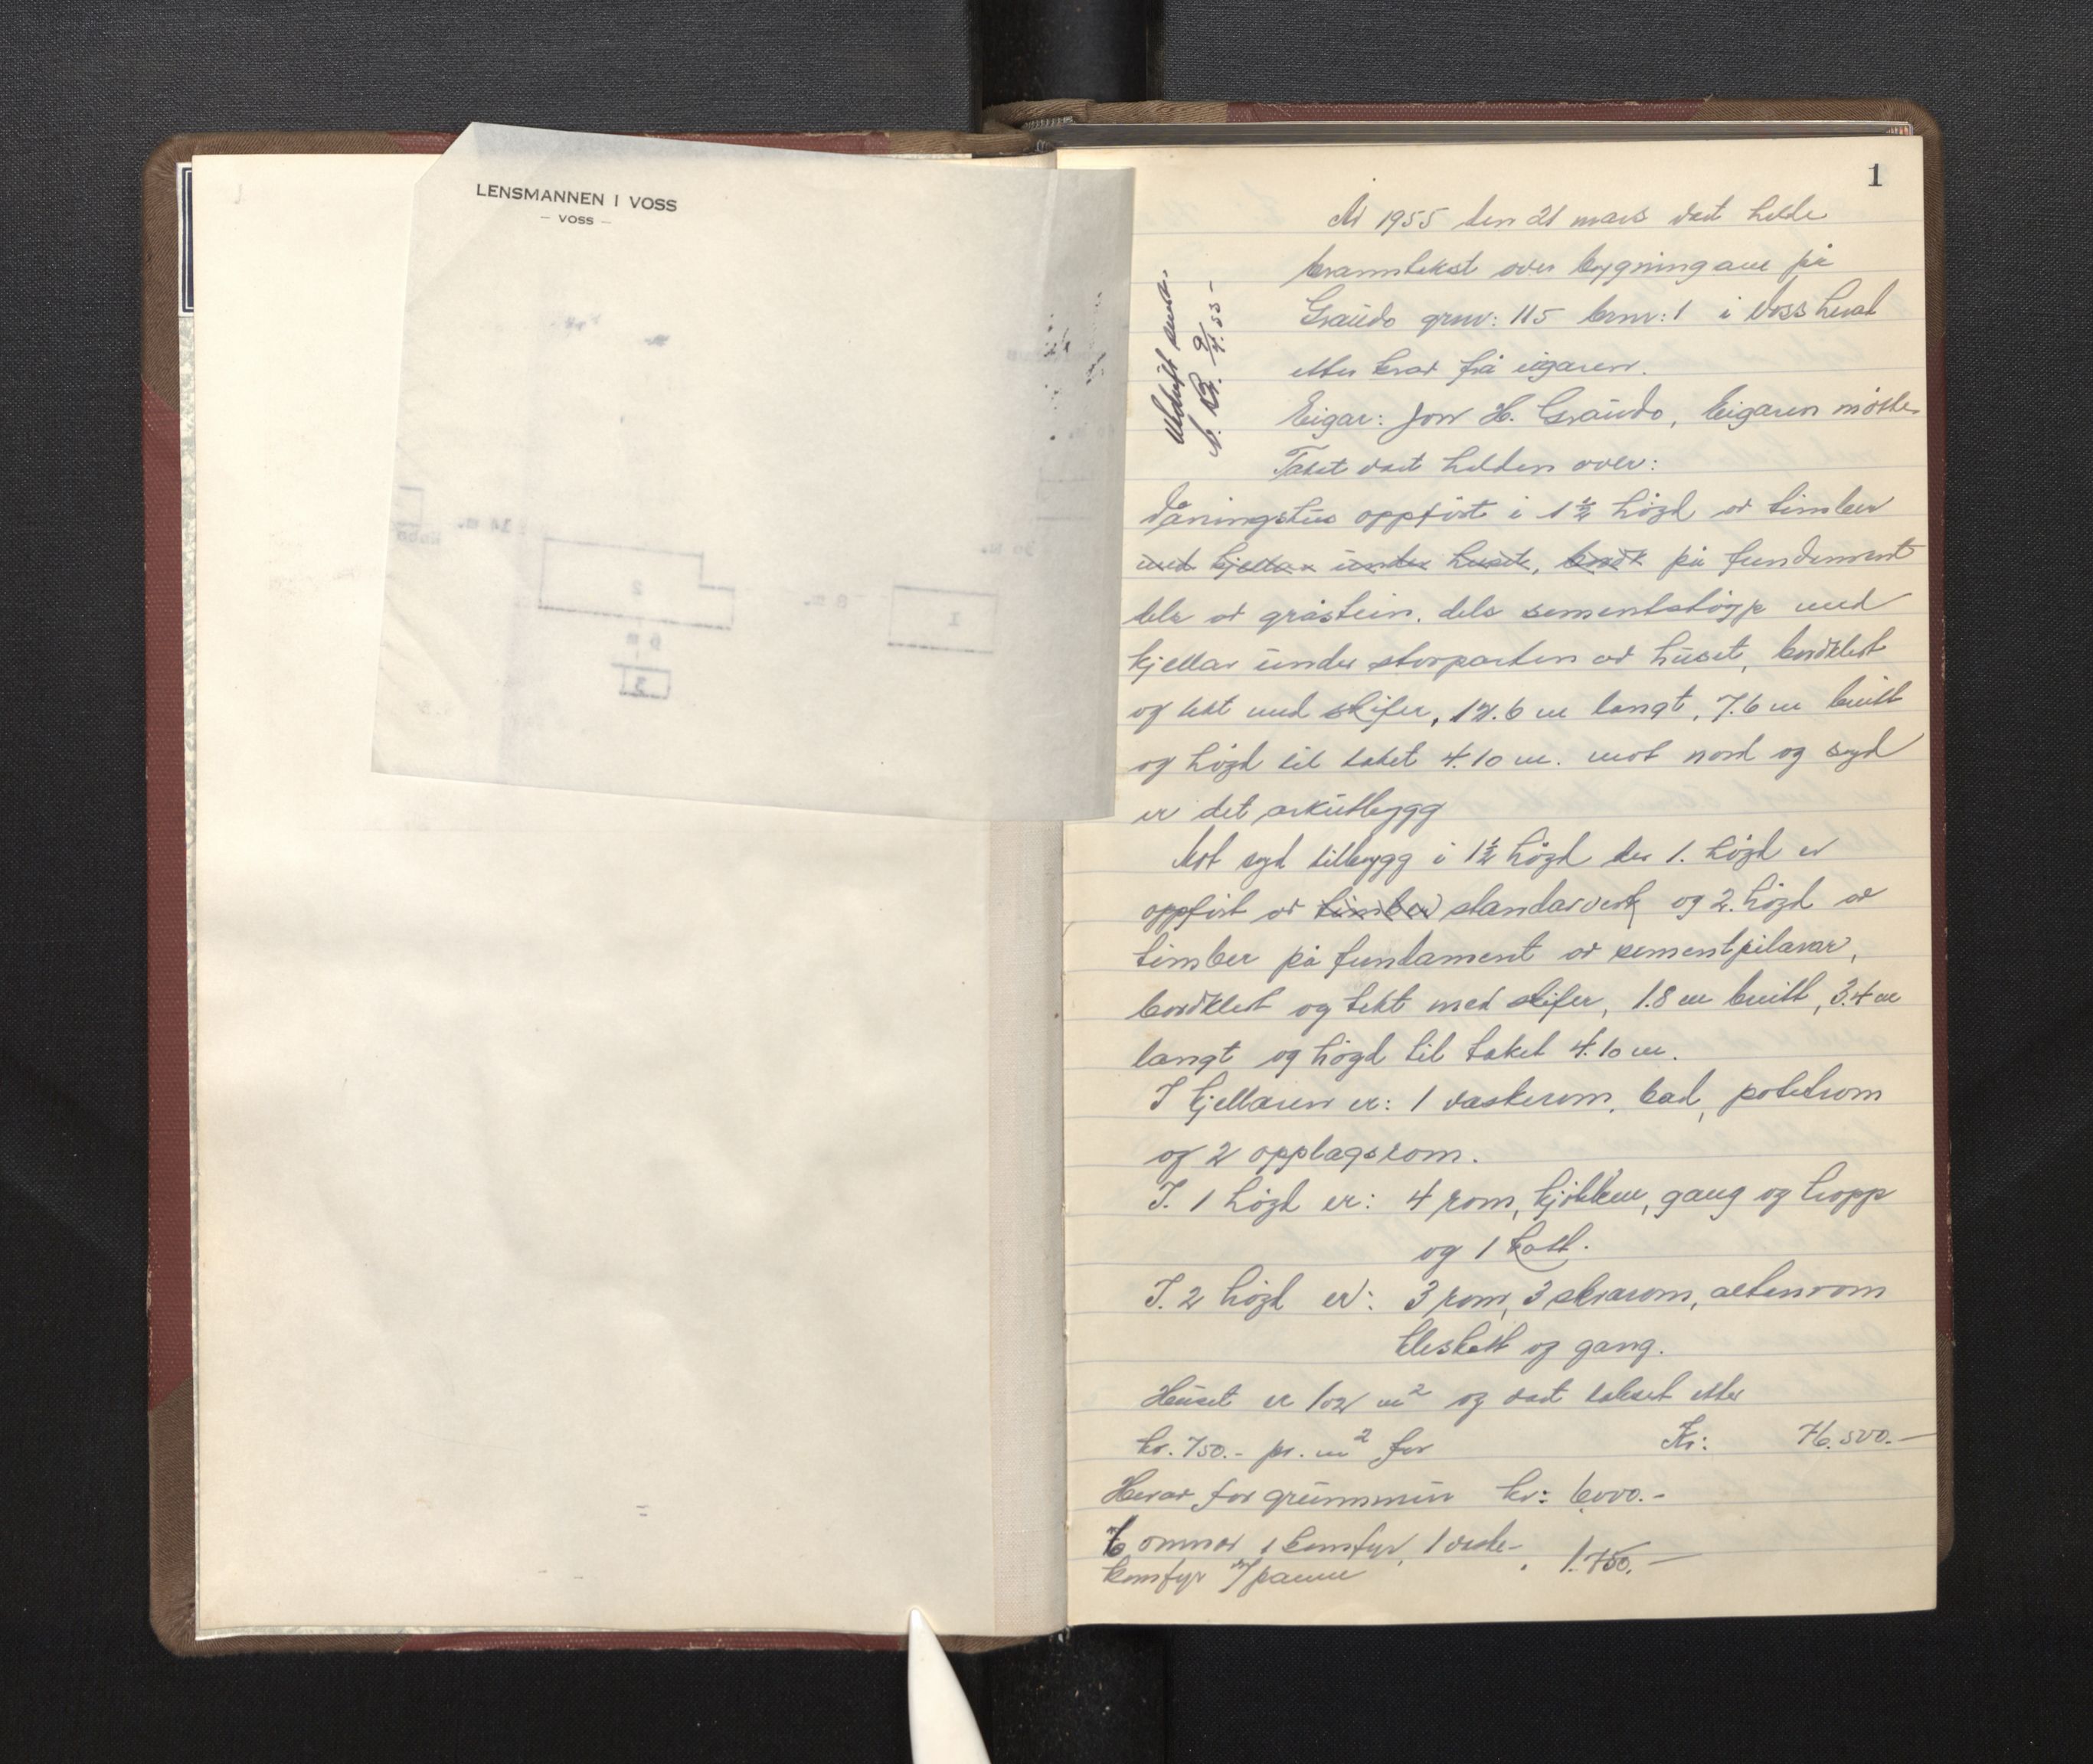 LENSMANNEN I VOSS
– VOSS –
1
År 1955 den 21 mars vart helde
branntakst over bygningane på
Graudo gnr: 115 bnr: 1 i Voss herad
etter krav frå eigaren.
Eigar: Jon H. Graudo, Eigaren møtte
Takst vart halden over:
Våningshus oppført i 1½ høgd av timber
med kjellar under huset, bordk på fundement
dels av gråstein, dels sementstøyp med
kjellar under storparten av huset, bordkledt
og tekt med skifer, 12.6 m langt, 7.6 m breitt
og høgd til taket 4.10 m. mot nord og syd
er det arkutbygg
Mot syd tilbygg i 1½ høgd der 1. høgd er
oppført av timber standarverk og 2. høgd av
timber på fundament av sementpilarar,
bordkledt og tekt med skifer, 1.8 m breitt, 3.4 m
langt og høgd til taket 4.10 m.
I kjellaren er: 1 vaskerom, bad, potetrom
og 2 opplagsrom.
I. 1 høgd er: 4 rom, kjøkken, gang og tropp
og 1 kott.
I. 2 høgd er: 3 rom, 3 skrarom, altenrom
kleskott og gang.
Huset er 102 m² og vart takset etter
kr. 750.- pr. m² for Kr: 76.500.-
Herav for grunnmur kr: 6000.-
6 omnar 1 komfyr, 1 vaske-
komfyr m/panne " 1.750.-
Utskrift send.
9/4.55 -
14 m.
2
8 m.
1
6 m
3
30 m.